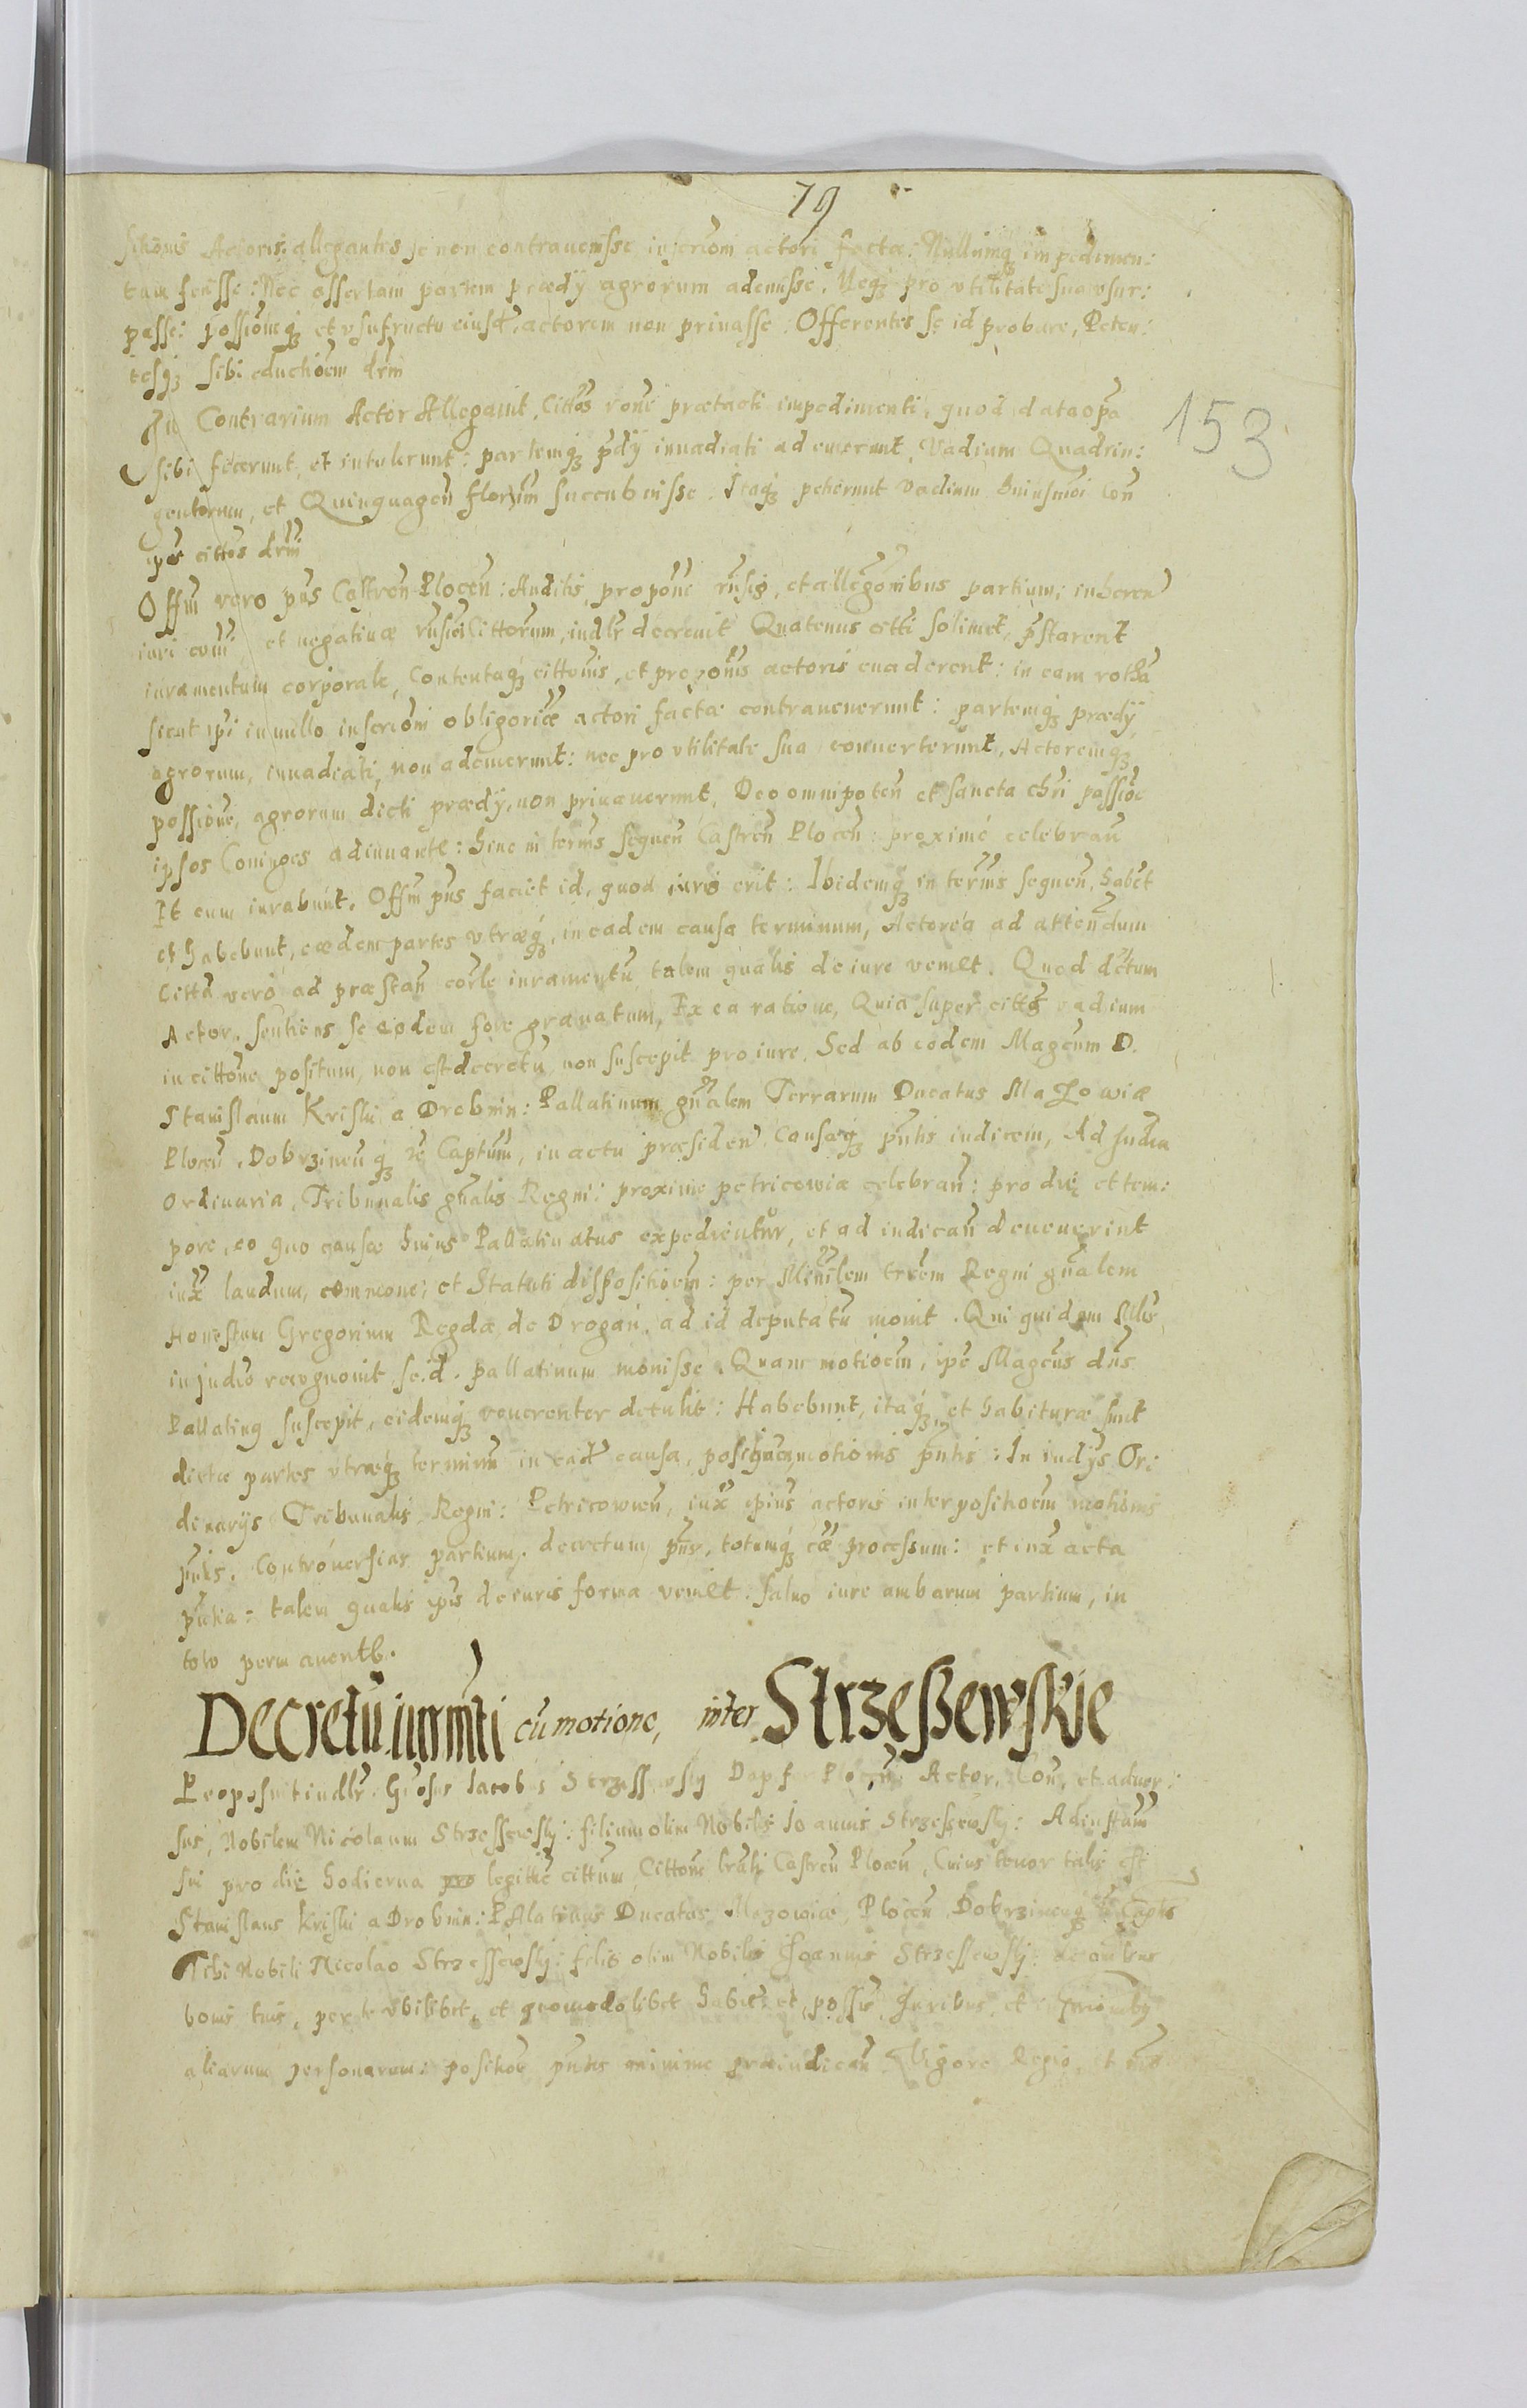 79
sitionis Actoris, allegantes se non contravenisse inscrioni actori factae: Nullumq impedimen:
tum fecisse: Nec assertam partem praedij agrorum ademisse. Neq pro utilitate sua usur:
passe: possioneq et usufructu eiusd. actorem non privasse. Offerentes se id probare, Peten:
tesq sibi eductioem drni
In Contrarium Actor Allegavit, Cittos rone praetacti impedimenti, quod data opa
sibi fecerunt, et intulerunt: partemq pdij invadiati ademerunt, Vadium Quadrin:
gentorum, et Quinquagen florum succubuisse. Itaq petierunt vadium huiusmoi Con
ipos cittos drni
153
Offm vero pns Castren Plocen: Auditis, propone rnsis, et allegonibus partium, inheren
iuri coi, et negativae rnsioi Cittorum, indlr decrevit Quatenus citti solimet, pstarent
iuramentum corporale, Contentaq cittonis, et proponis actoris evaderent: in eam rotha
sicut ipi in nullo inscrioni obligoriae actori factae contravenerunt: partemq praedij
agrorum, invadiati, non ademerunt: nec pro utilitate sua converterunt, Actoremq
possione, agrorum dicti praedij, non privaverunt, Deo omnipoten et sancta chri passioe
ipsos Coniuges adiuvante: Hinc in termis sequen Castren Plocen: proxime celebran
Et cum iurabunt. Offm pns faciet id, quod iuris erit: Ibidemq in termis sequen, habet
et habebunt, eaedem partes utraeq, in eadem causa terminum, Actorea ad attendum
Citta vero ad praestan corle iuramentu talem qualis de iure venit. Quod dctum
Actor, sentiens se eodem fore gravatum, Ex ea ratione, Quia super cittos vadium
in cittone positum, non est decretu, non suscepit pro iure. Sed ab eodem Magcum D.
Stanislaum Kriski a Drobnin: Pallatinum gnalem Terrarum Ducatus Mazowiae
Plocen, Dobrzinenq ec Captum, in actu praesiden Causaeq pntis iudicem, Ad Iudia
Ordinaria, Tribunalis gnalis Regni: proxime petricowiae celebran: pro die et tem:
pore, eo quo causae huius Pallatinatus expedientur, et ad iudican devenerint
iux laudum, commone, et Statuti dispositioem: per Minilem trrem Regni gnalem
Honestum Gregorium Regda de Drogan, ad id deputatu movit. Qui quidem Mlis
in Iudio recognovit, se. d. pallatinum movisse. Quam motioem, ipe Magcus dns
Pallatinq suscepit, eidemq reverenter detulit: Habebunt, itaq et habiturae sunt
dictae partes utraeq terminu in ead causa, motionis pntis: In iudijs Or:
dinarijs Tribunalis Regni: Petricowien, iux ipius actoris interpositioem motionis
pntis, Controversias partium, decretum pns, totumq cae processum: et iux acta
pntia: talem qualis ipis de iuris forma venit. Salvo iure ambarum partium, in
toto permanentb.
Decretu iurmti cu motione, inter Strzeszewskie
Proposuit indlr. Gnosus Iacobus Strzessewsky Dapfer Plocen Actor, Con, et adver:
sus, Nobilem Nicolaum Strzessewsky: filium olim Nobilis Ioannis Strzessewsky: Ad instam
sui pro die hodierna legitime cittum, Cittone lrali Castren Plocen, Cuius tenor talis est
Stanislaus Kriski a Drobnin: Palatinus Ducatus Mazowiae, Plocen Dobrzinenq ec Captus
Tibi Nobili Nicolao Strzessewsky: filio olim Nobilis Ioannis Strzessewsky: de omibus
bonis tuis, per te ubilibet, et quomodolibet habit et possis, Iuribus, et
aliarum personarum: positione pntis minime praeiudican Vigore Regio, et